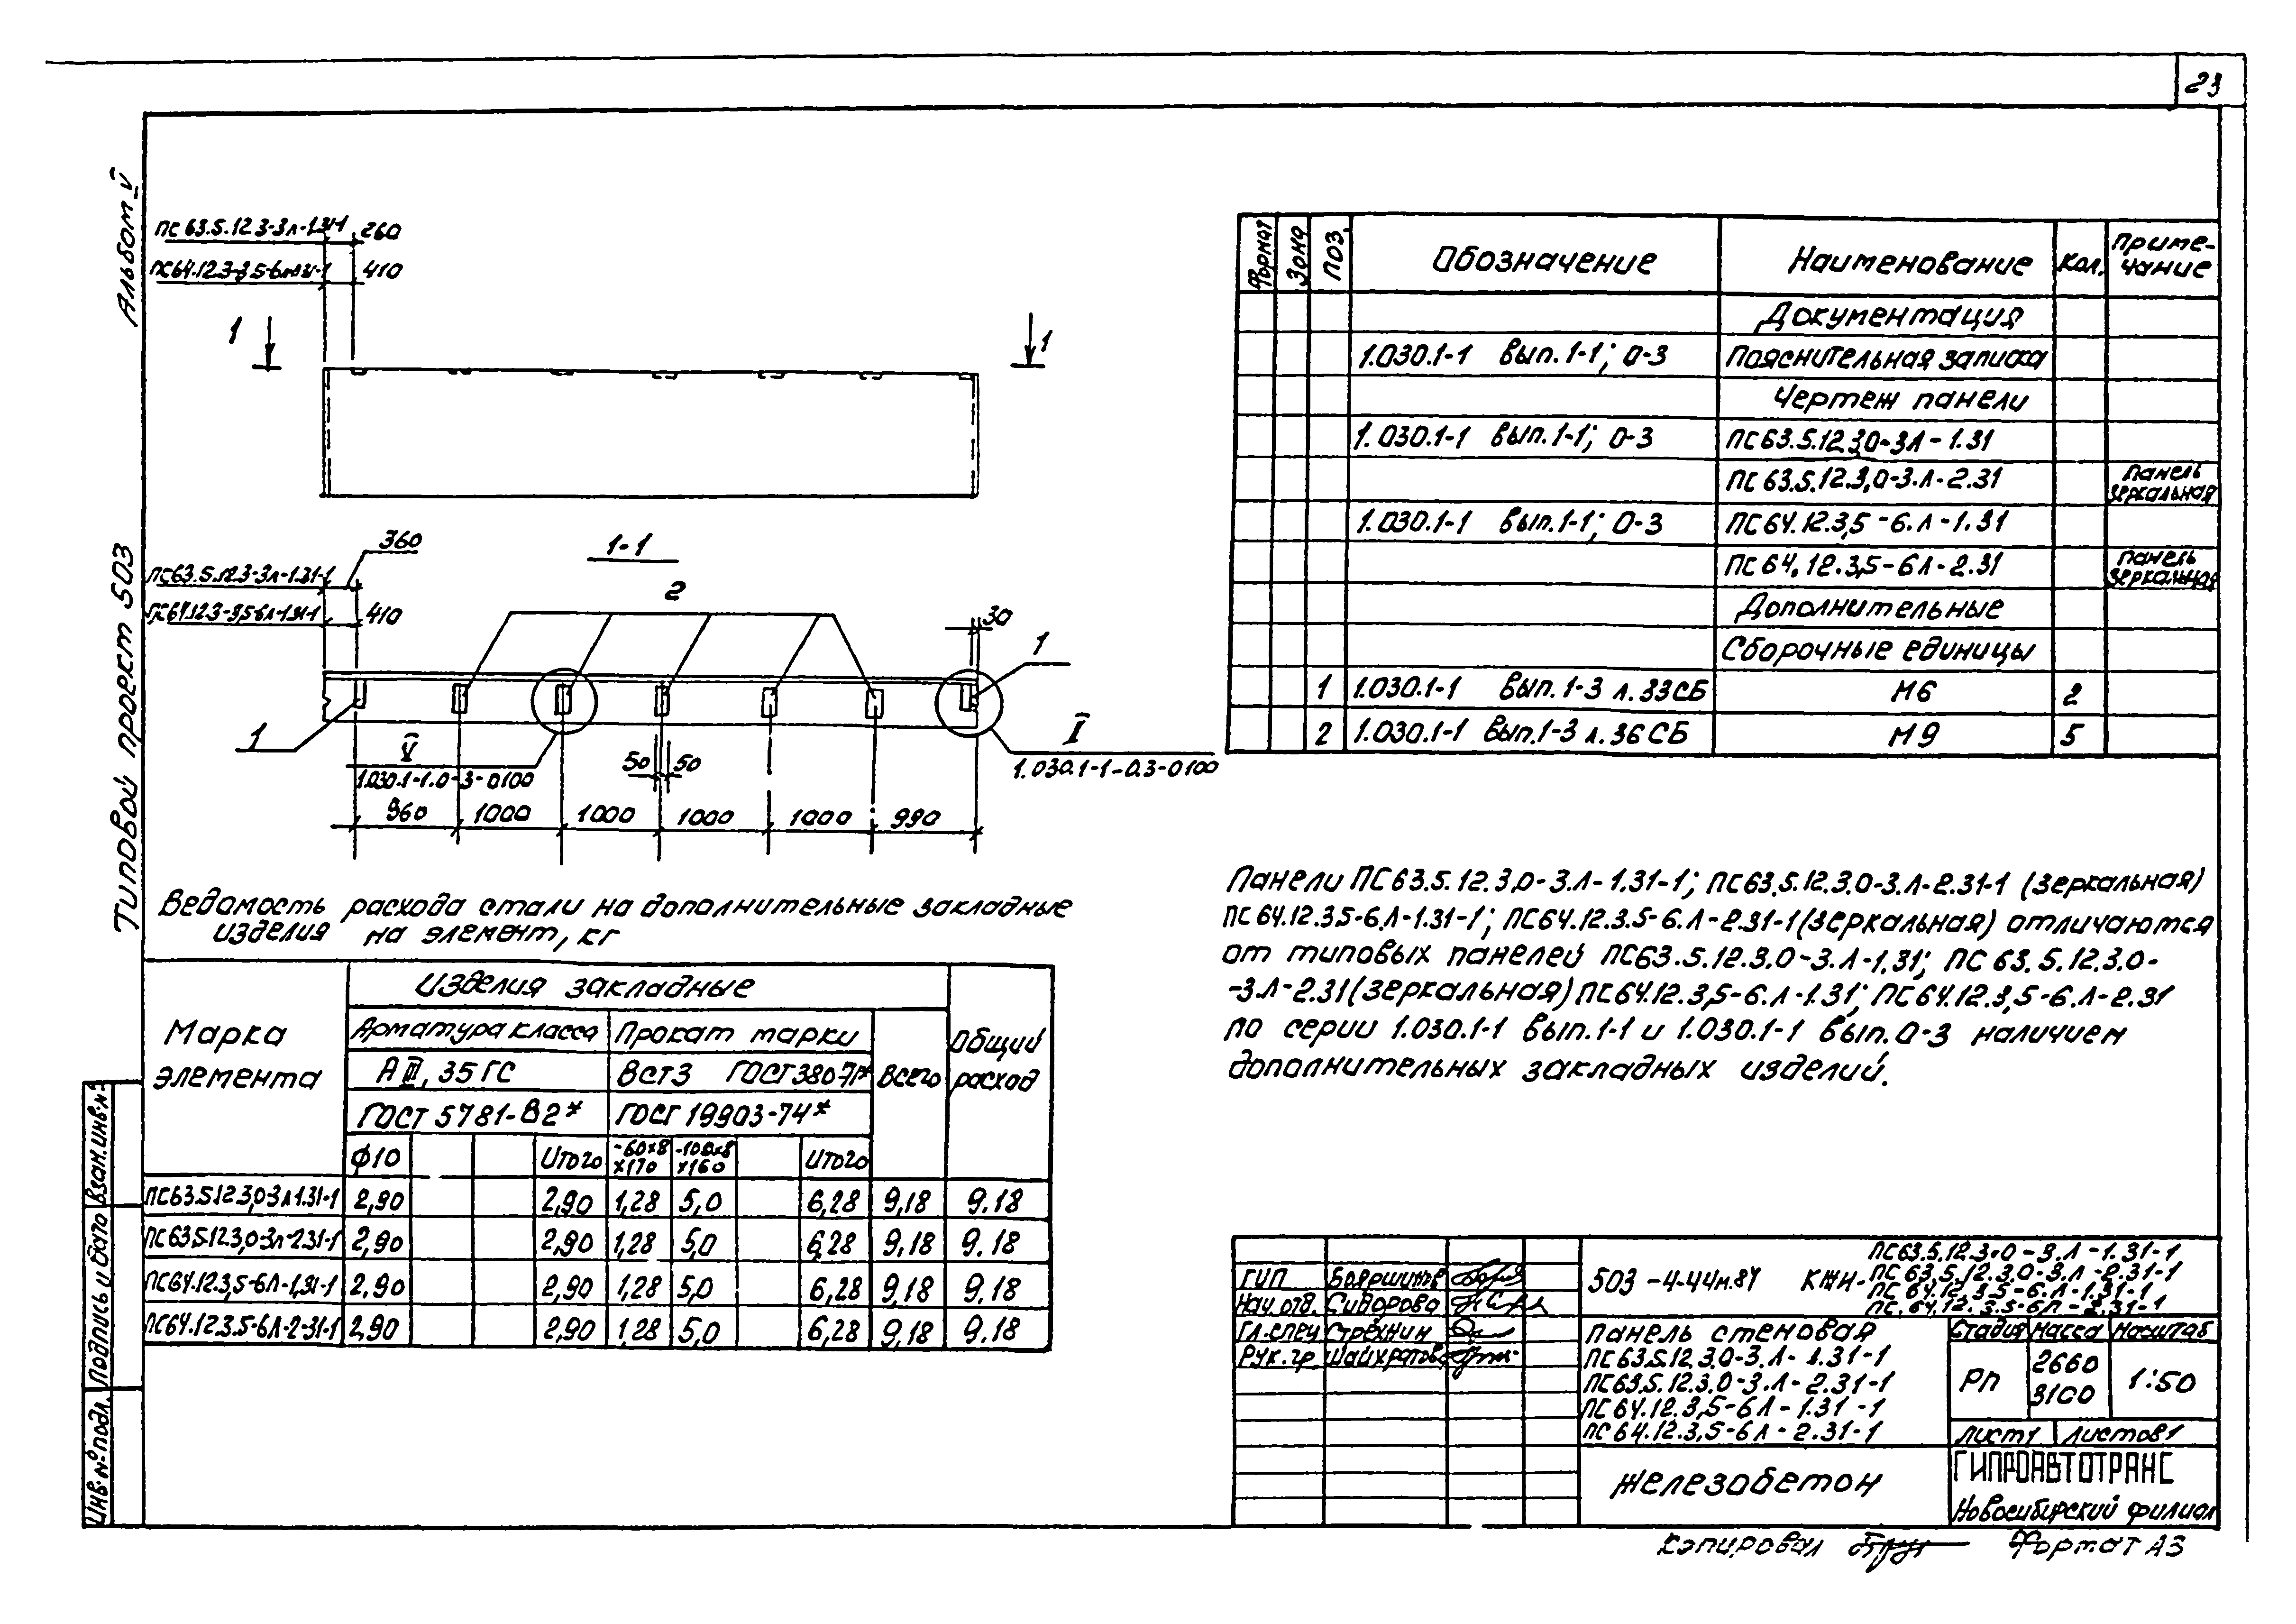 23
Альбом V
Типовой проект 503
ПС 63.5.12.3-3л-1.31-1 260
ПС64.12.3-3,5-6л-1.31-1 410
1 1
1-1
360
ПС63.5.12.3-3л-1.31-1
ПС64.12.3-3,5-6л-1.31-1 410
2
30
1
1
V
1.030.1-1.0-3-0100
50 50
I
1.030.1-1-0.3-0100
960 1000 1000 1000 1000 990
Формат Зона Поз. Обозначение Наименование Кол. Приме-
чание
Документация
1.030.1-1 вып.1-1; 0-3 Пояснительная записка
Чертеж панели
1.030.1-1 вып.1-1; 0-3 ПС63.5.12.3,0-3Л-1.31
ПС 63.5.12.3,0-3.Л-2.31 панель
зеркальная
1.030.1-1 вып.1-1; 0-3 ПС64.12.3,5-6.Л-1.31
ПС 64.12.3,5-6Л-2.31 панель
зеркальная
Дополнительные
Сборочные единицы
1 1.030.1-1 вып.1-3 л.33СБ М6 2
2 1.030.1-1 вып.1-3 л.36СБ М9 5
Ведомость расхода стали на дополнительные закладные
изделия на элемент, кг
Марка
элемента
Изделия закладные
Общий
расход
Арматура класса Прокат марки Всего
А III, 35 ГС Вст3 ГОСТ380-71*
ГОСТ 5781-82* ГОСТ 19903-74*
ф10 Итого -60х8
х170 -100х8
х160 Итого
ПС63.5.12.3,0-3Л-1.31-1 2,90 2,90 1,28 5,0 6,28 9,18 9.18
ПС63.5.12.3,0-3Л-2.31-1 2,90 2,90 1,28 5,0 6,28 9,18 9.18
ПС64.12.3,5-6Л-1,31-1 2,90 2,90 1,28 5,0 6,28 9,18 9.18
ПС64.12.3.5-6Л-2-31-1 2,90 2,90 1,28 5,0 6,28 9,18 9.18
Панели ПС63.5.12.3,0-3.Л-1.31-1; ПС63.5.12.3.0-3.Л-2.31-1 (зеркальная)
ПС 64.12.3.5-6.Л-1.31-1; ПС64.12.3.5-6.Л-2.31-1 (зеркальная) отличаются
от типовых панелей ПС63.5.12.3.0-3.Л-1.31; ПС 63.5.12.3.0-
-3.Л-2.31 (зеркальная) ПС64.12.3,5-6.Л-1.31; ПС64.12.3,5-6.Л-2.31
по серии 1.030.1-1 вып.1-1 и 1.030.1-1 вып.0-3 наличием
дополнительных закладных изделий.
Взам.инв.№
Подпись и дата
Инв.№подл.
ГИП Бояршинов
Нач.отд. Сидорова
Гл.спец Стрехнин
Рук.гр.
503-4-44м.87 КЖН-
ПС63.5.12.3.0-3.Л-1.31-1
ПС 63.5.12.3.0-3.Л-2.31-1
ПС 64.12.3.5-6.Л-1.31-1
ПС.64.12.3.5-6Л-2.31-1
Панель стеновая
ПС 63.5.12.3.0-3.Л-1.31-1
ПС63.5.12.3.0-3.Л-2.31-1
ПС 64.12.3,5-6Л-1.31-1
ПС 64.12.3,5-6Л-2.31-1
Стадия Масса Масштаб
РП 2660
3100 1:50
Лист1 Листов1
Железобетон
ГИПРОАВТОТРАНС
Новосибирский филиал
Копировал Формат А3